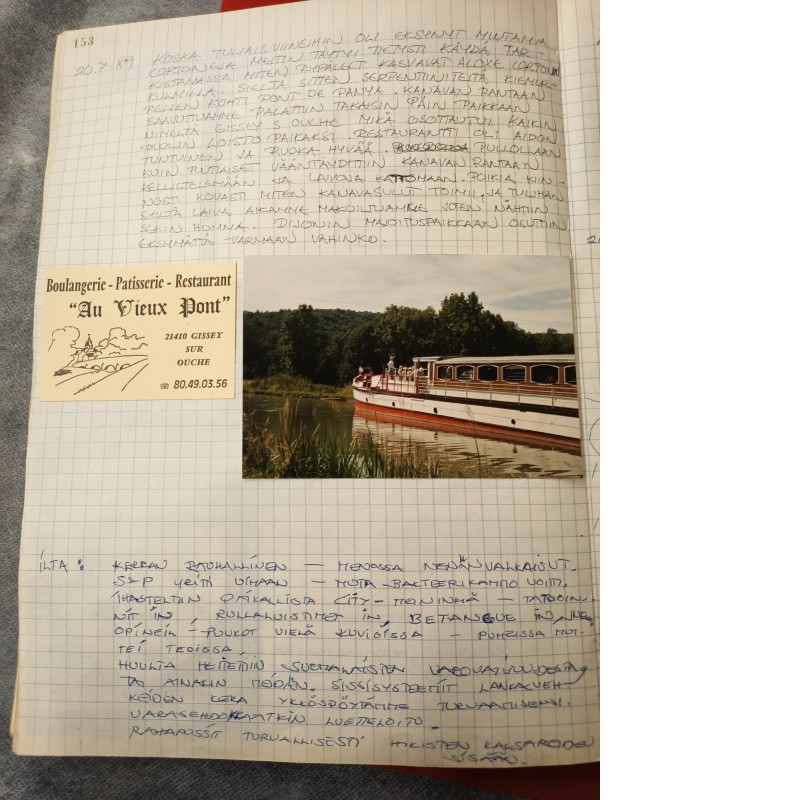 153
20.7-89 KOSKA TULIAISVIINEIHIN OLI EKSYNYT MUUTAMIA
CORTONEJA MEITIN TÄYTYI TIETYSTI KÄYDÄ TAR-
KISTAMASSA MITEN RYPÄLEET KASVAVAT ALOXE CORTONIN
KULMILLA. SIELTÄ SITTEN SERPENTIINITEITÄ KIEMUR-
RELLEN KOHTI PONT DE PANYA. KANAVAN RANTAAN
SAAVUTTUAMME PALATTIIN TAKAISIN PÄIN PAIKKAAN
NIMELTÄ GISSEY S OUCHE MIKÄ OSOTTAUTUI KAIKIN
PUOLIN LOISTO PAIKAKSI. RESTAURANTTI OLI AIDON
TUNTUINEN JA RUOKA HYVÄÄ. PULLOLLAAN
KUIN PUNTIAISET VÄÄNTÄYDYTTIIN KANAVAN RANTAAN
KELLISTELEMÄÄN JA LAIVOJA KATTOMAAN. POIKIA KIIN-
NOSTI KOVASTI MITEN KANAVASULUT TOIMII, JA TULIHAN
SIELTÄ LAIVA AIKAMME MAKOILTUAMME JOTEN NÄHTIIN
SEKIN HOMMA. DIJONIN MAJOITUSPAIKKAAN OSUTTIIN
EKSYMÄTTÄ - VARMAAN VAHINKO.
Boulangerie - Patisserie - Restaurant
"Au Vieux Pont"
21410 GISSEY
SUR
OUCHE
☏ 80.49.03.56
ILTA: KERRAN RAUHALLINEN — MENOSSA NENÄNVALKAISUT.
S&P YRITTI UIMAAN — MUTA-BAKTEERIKAMMO VOITTI.
IHASTELTIIN PAIKALLISTA CITY-MENINKIÄ — TATOOIN-
NIT IN, RULLALUISTIMET IN, BETANGUE IN,
- PUUKOT VIELÄ KUVIOISSA - PUHEISSA MUT-
TEI TEOISSA.
HUULTA HEITETTIIN SUOMALAISTEN VAROVAISUUDESTA
TAI AINAKIN MEIDÄN. SISSISYSTEEMIT LANKAVYYH-
KEIDEN KERA YKKÖSPÖYTÄMME TURVAAMISEKSI.
VARASEHDOKKAATKIN LUETTELOITU.
RAHAPUSSIT TURVALLISESTI HIKISTEN KALSAREIDEN
SISÄÄN.